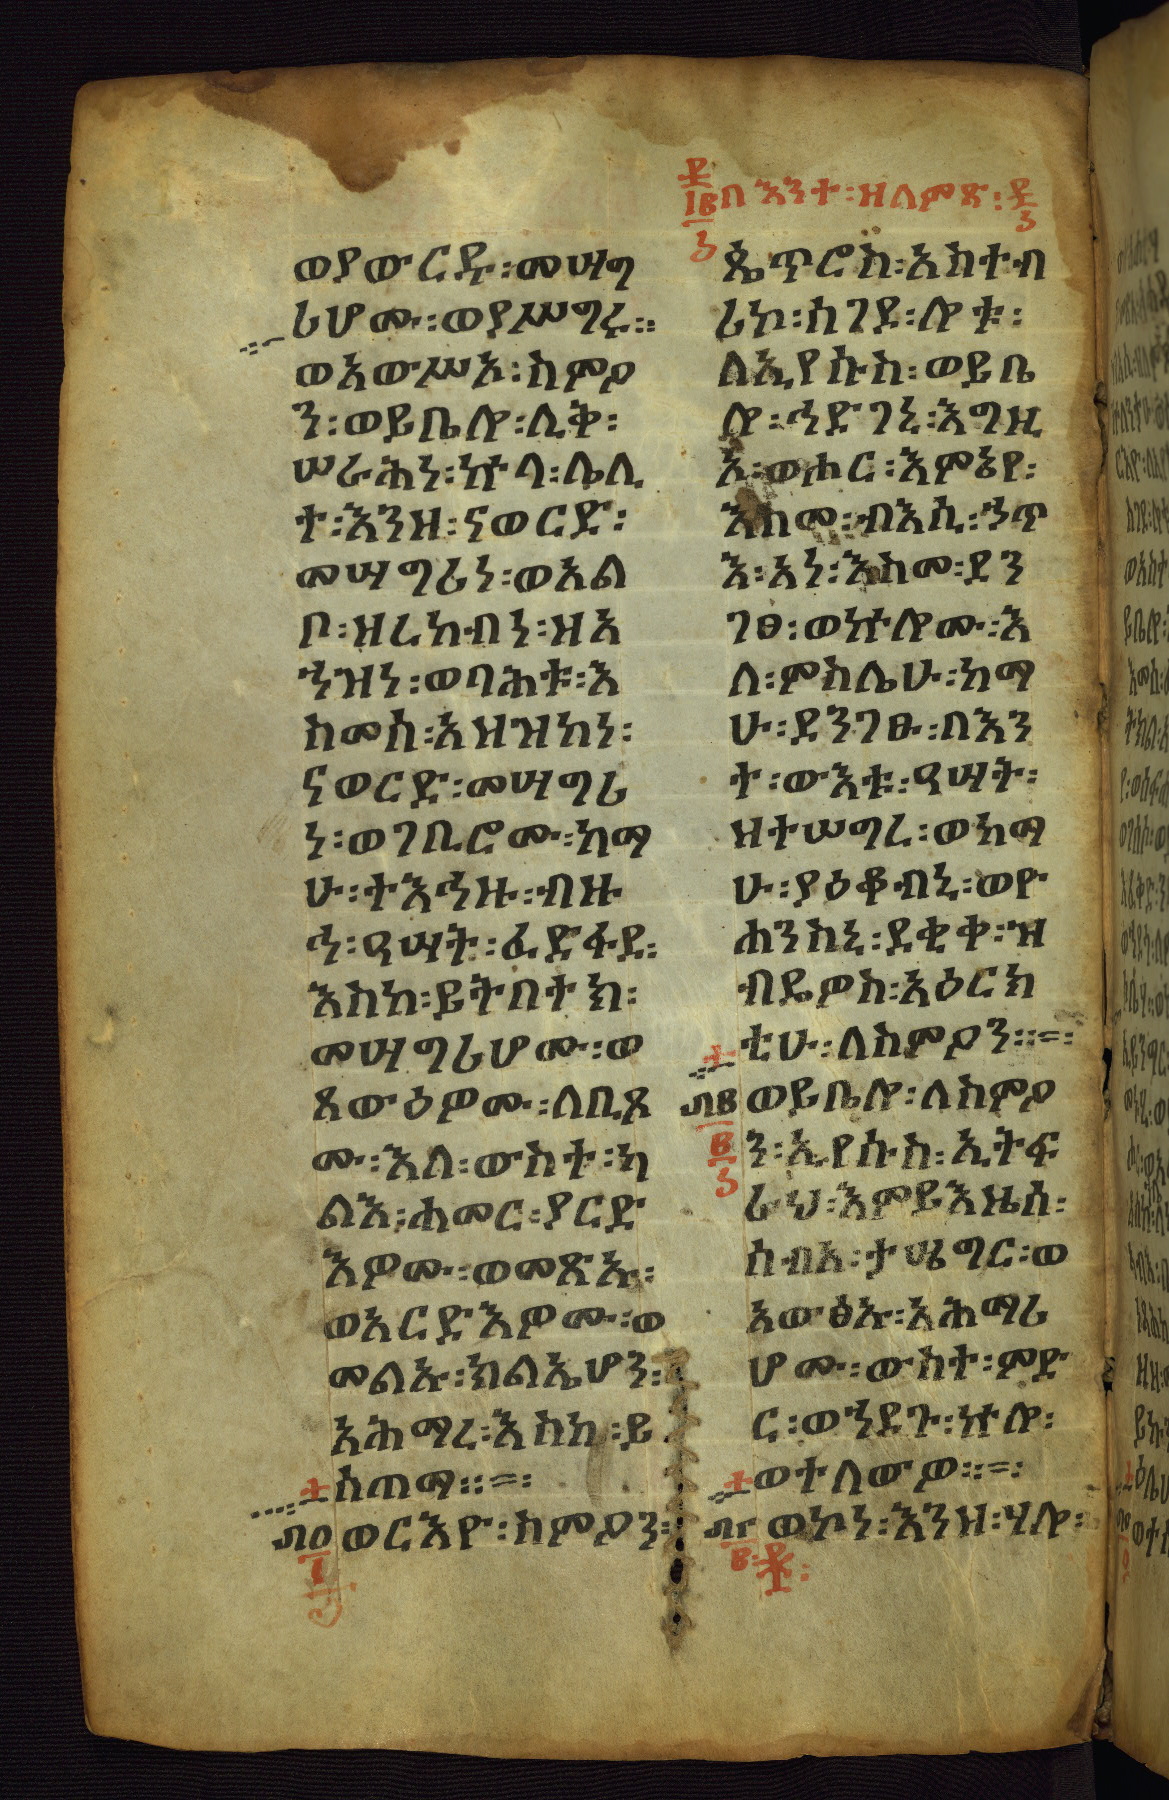 በእንተ፡ዘለምጽ፡
ወያውርዱ፡መሣግ
ሪሆሙ፡ወያሥግሩ።
ወአውሥአ፡ስምዖ
ን፡ወይቤሎ፡ሊቅ፡
ሠራሕነ፡ኵላ፡ሌሊ
ተ፡እንዘ፡ናወርድ፡
መሣግሪነ፡ወአል
ቦ፡ዘረከብነ፡ዘአ
ኀዝነ፡ወባሕቱ፡እ
ስመሰ፡አዘዝከነ፡
ናወርድ፡መሣግሪ
ነ፡ወገቢሮሙ፡ከማ
ሁ፡ተእኅዙ፡ብዙ
ኅ፡ዓሣት፡ፈድፋደ፡
እስከ፡ይትበተክ፡
መሣግሪሆሙ፡ወ
ጸውዕዎሙ፡ለቢጾ
ሙ፡እለ፡ውስተ፡ካ
ልእ፡ሐመር፡ያርድ
እዎሙ፡ወመጽኡ፡
ወአርድእዎሙ፡ወ
መልኡ፡ክልኤሆን፡
አሕማረ፡እስከ፡ይ
ሰጠማ።=፡
ወርእዮ፡ስምዖን፡
ጴጥሮስ፡አስተብ
ረኮ፡ሰገደ፡ሎቱ፡
ለኢየሱስ፡ወይቤ
ሎ፡ኅድገኒ፡እግዚ
አ፡ወሑር፡እምኔየ፡
እስመ፡ብእሲ፡ኃጥ
እ፡አነ፡እስመ፡ደን
ገፀ፡ወኵሎሙ፡እ
ለ፡ምስሌሁ፡ከማ
ሁ፡ደንገፁ፡በእን
ተ፡ውእቱ፡ዓሣት፡
ዘተሠግረ፡ወከማ
ሁ፡ያዕቆብኒ፡ወዮ
ሐንስኒ፡ደቂቀ፡ዝ
ብዴዎስ፡አዕርክ
ቲሁ፡ለስምዖን።=፡
ወይቤሎ፡ለስምዖ
ን፡ኢየሱስ፡ኢትፍ
ራህ፡እምይእዜሰ፡
ሰብአ፡ታሤግር፡ወ
አውፅኡ፡አሕማሪ
ሆሙ፡ውስተ፡ምድ
ር፡ወኀደጉ፡ኵሎ፡
ወተለውዎ።=፡
ወኮነ፡እንዘ፡ሃሎ፡